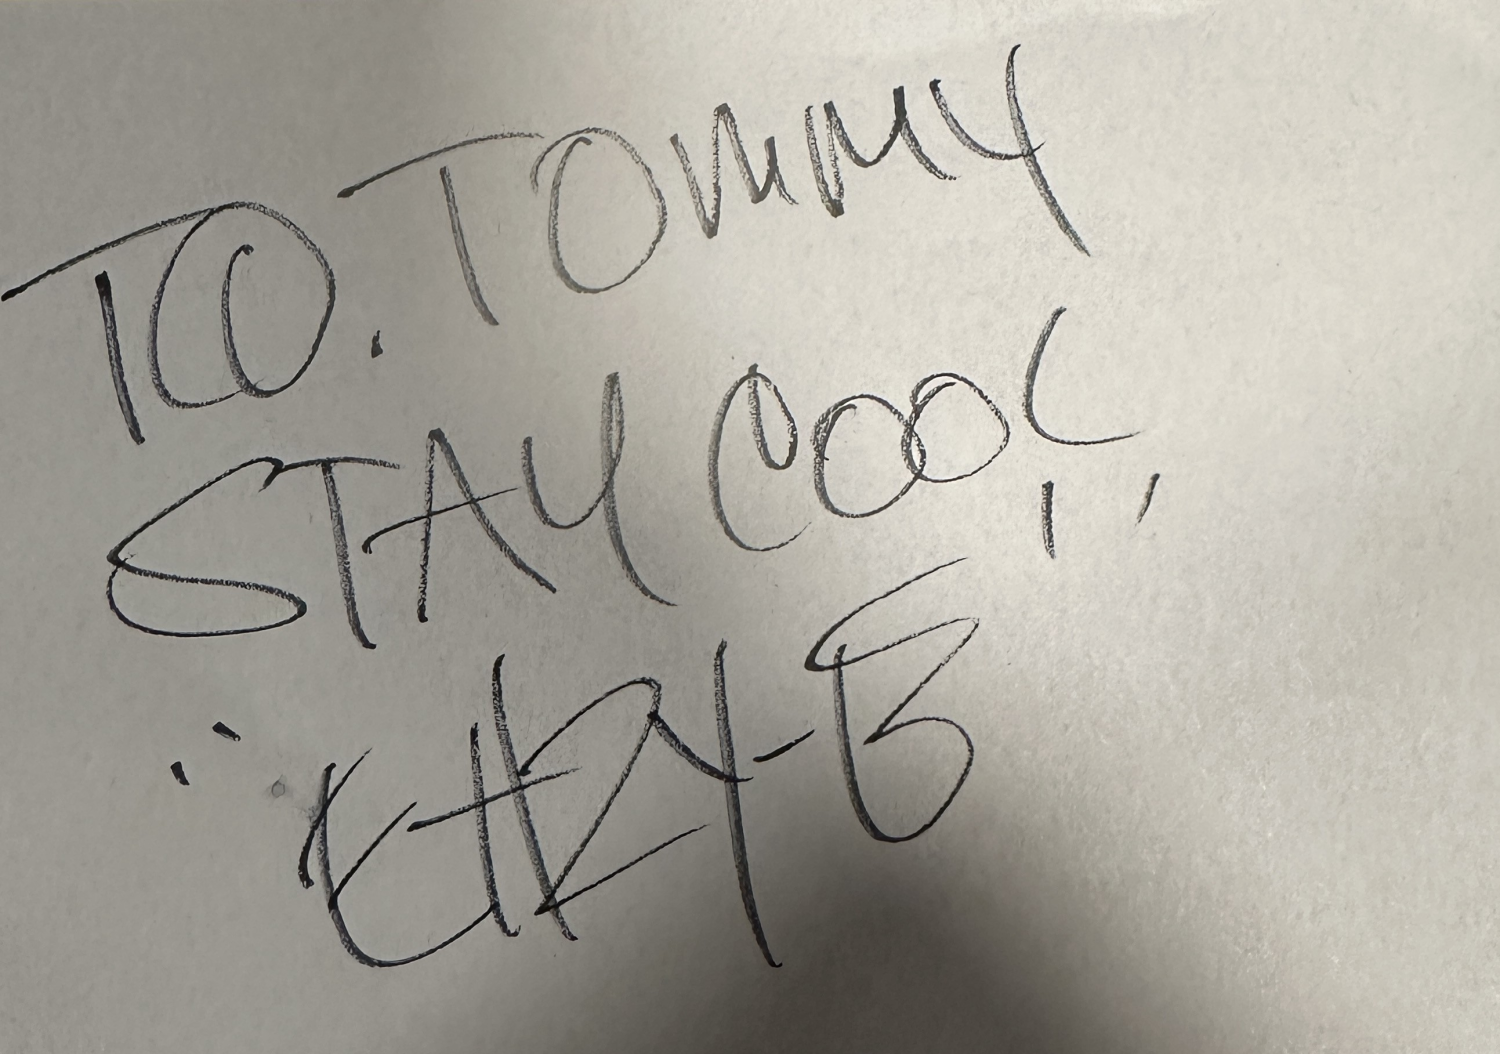 TO. TOMMY
"STAY COOL"